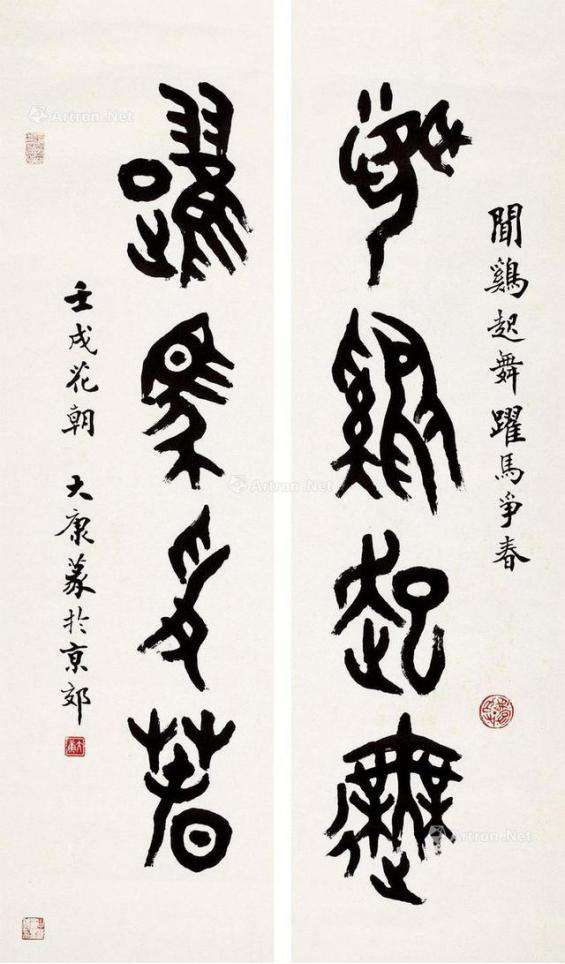 聞鷄起舞躍馬爭春
聞鷄起舞
躍馬爭春
壬戌花朝 大康篆於京郊
Artron.Net
Artron.Net
Artron.Net